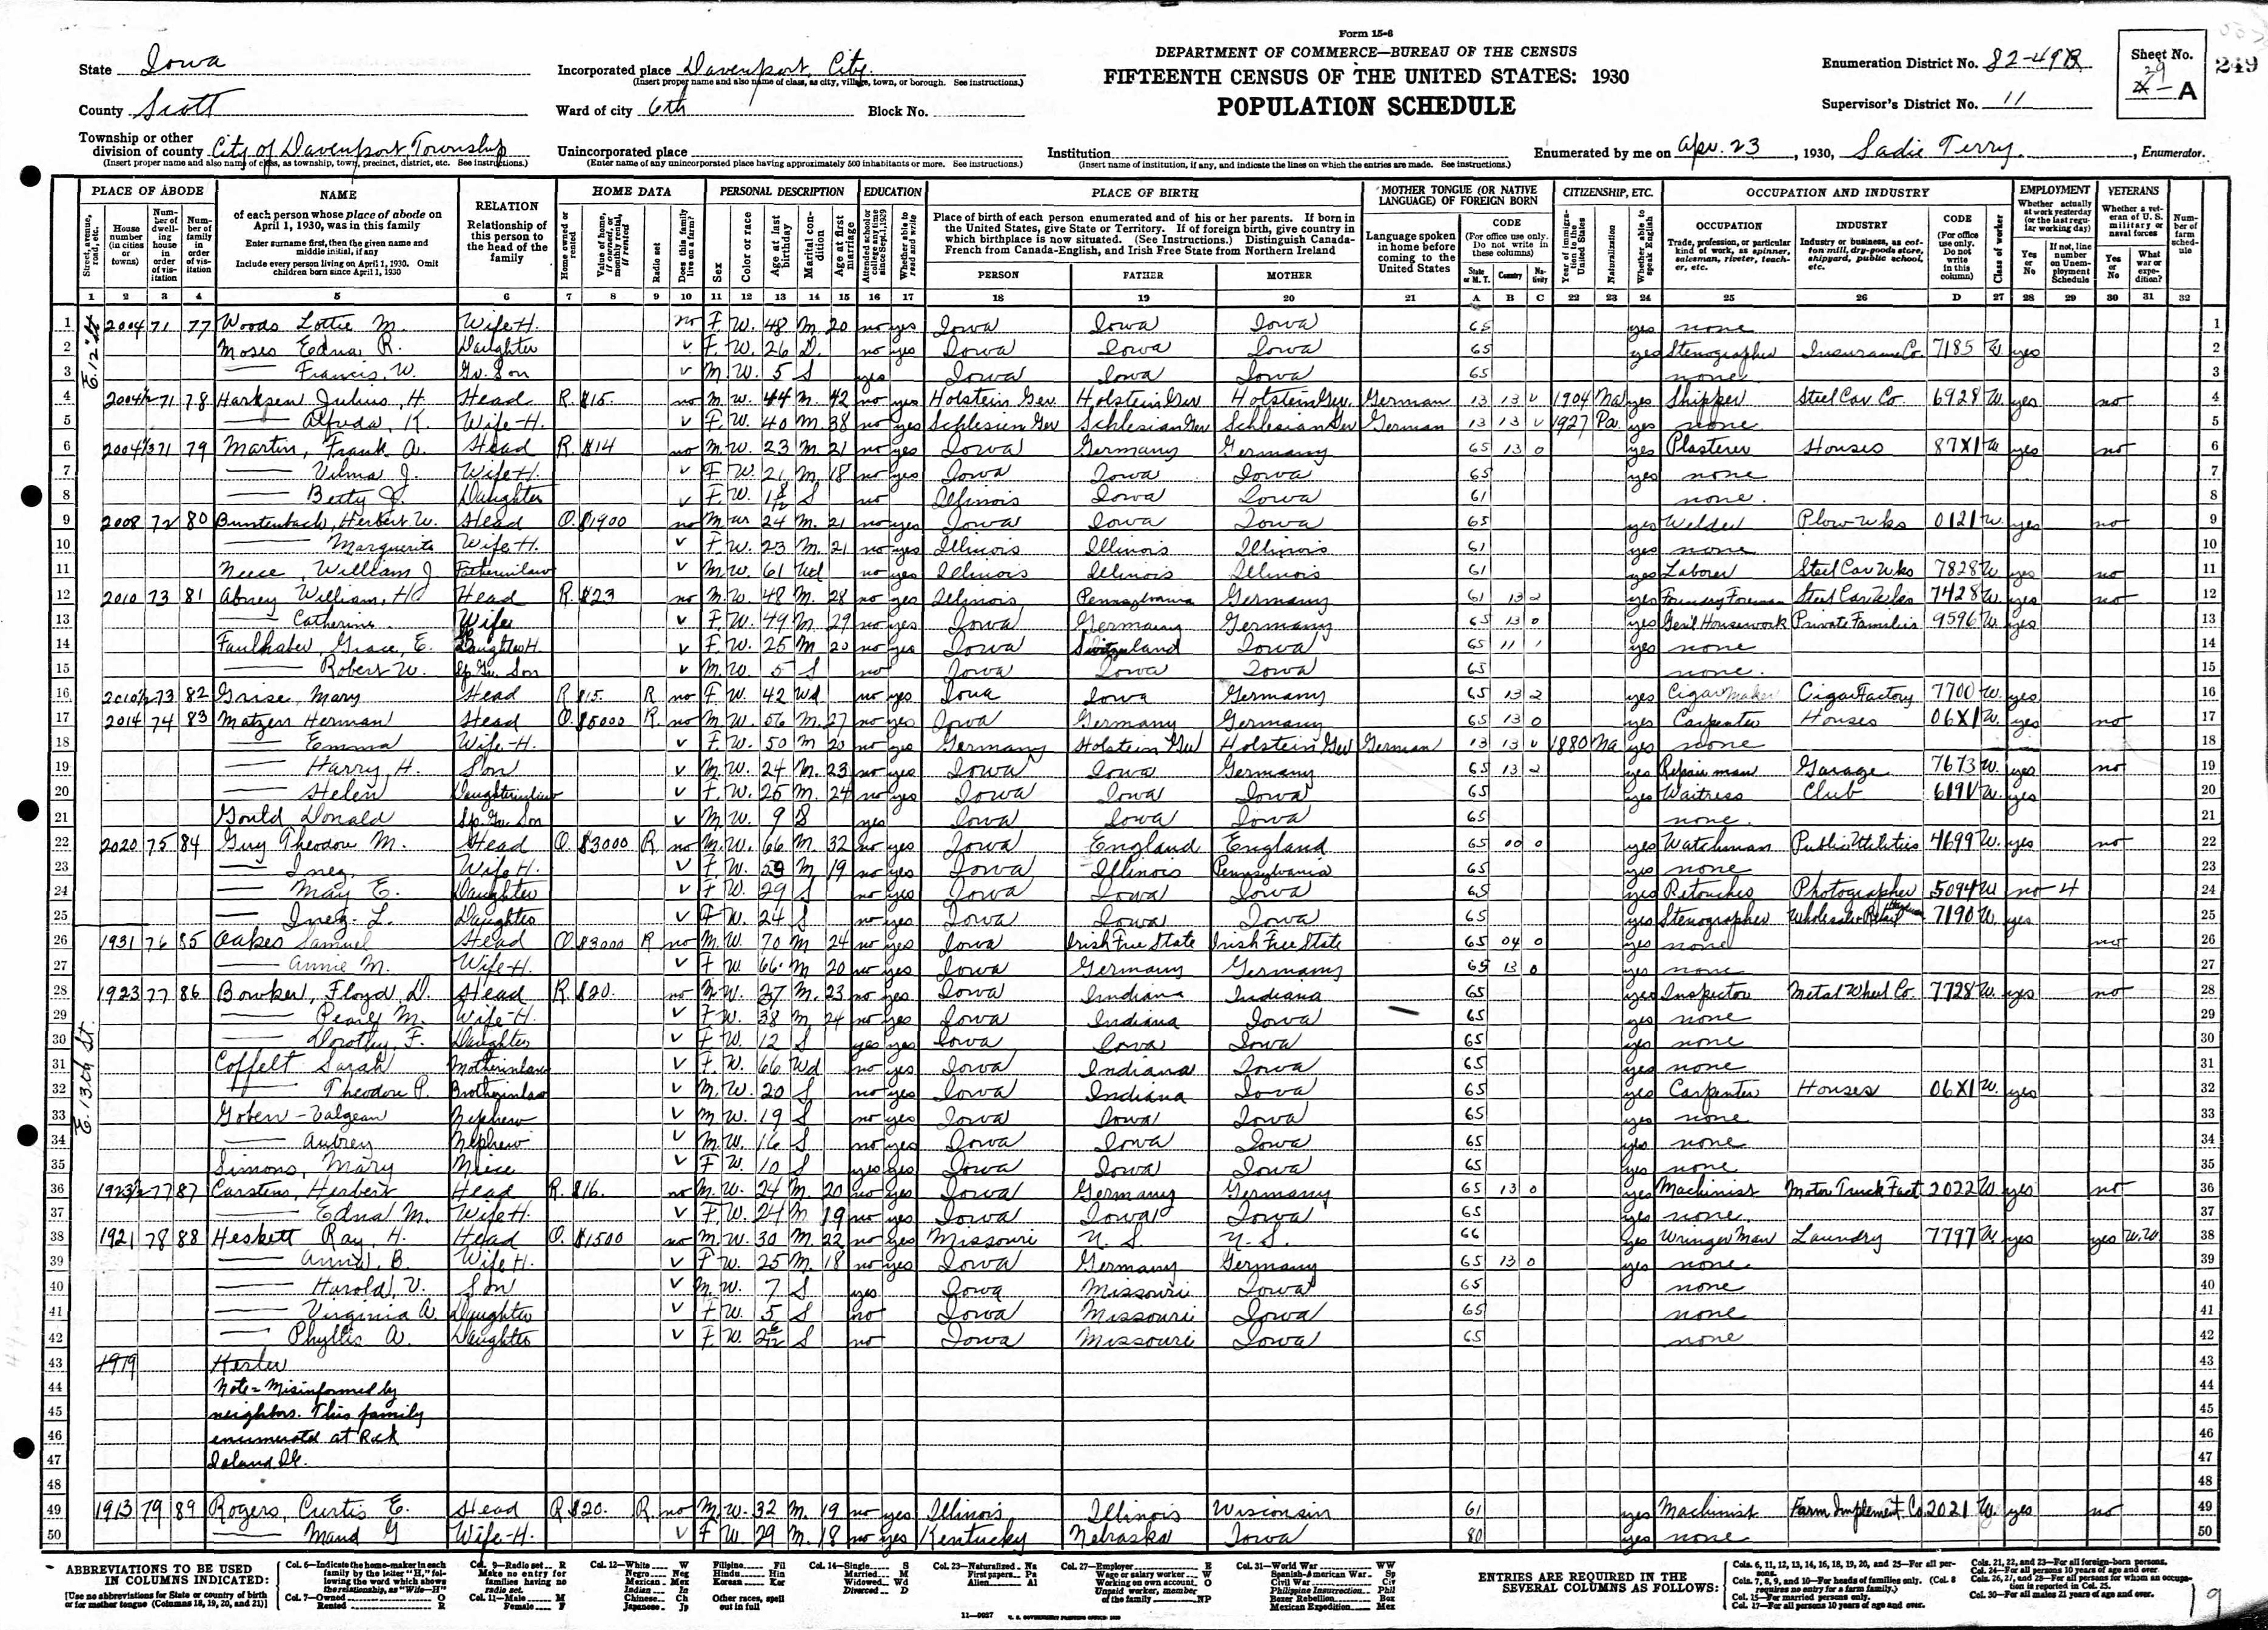 Form 15-6
DEPARTMENT OF COMMERCE—BUREAU OF THE CENSUS
FIFTEENTH CENSUS OF THE UNITED STATES: 1930
POPULATION SCHEDULE
State Iowa
County Scott
Township or other division of county City of Davenport Township
(Insert proper name and also name of class, as township, town, precinct, district, etc. See instructions.)
Incorporated place Davenport City
(Insert proper name and also name of class, as city, village, town, or borough. See instructions.)
Ward of city 6th Block No.
Unincorporated place
(Enter name of any unincorporated place having approximately 500 inhabitants or more. See instructions.)
Institution
(Insert name of institution, if any, and indicate the lines on which the entries are made. See instructions.)
Enumeration District No. 82-49
Supervisor's District No. 11
Sheet No. 29 A
249
Enumerated by me on Apr. 23, 1930, Sadie Terry, Enumerator.
PLACE OF ABODE NAME RELATION HOME DATA PERSONAL DESCRIPTION EDUCATION PLACE OF BIRTH MOTHER TONGUE (OR NATIVE LANGUAGE) OF FOREIGN BORN CITIZENSHIP, ETC. OCCUPATION AND INDUSTRY EMPLOYMENT VETERANS
E. 12 St
1 2004 71 77 Woods Lottie M. Wife H. no F. W. 48 M. 20 no yes Iowa Iowa Iowa 65 yes none 1
2 Moses Edna R. Daughter v F. W. 26 D. no yes Iowa Iowa Iowa 65 yes Stenographer Insurance Co 7185 W yes 2
3 Francis, W. Gr. Son v M. W. 5 S yes Iowa Iowa Iowa 65 none 3
4 2004½ 71 78 Harksen Julius, H. Head R $15 no M. W. 44 M. 42 no yes Holstein Ger Holstein Ger Holstein Ger. German 13 13 V 1904 Na yes Shipper Steel Car Co. 6928 W. yes no 4
5 Alfreda, K. Wife-H. v F. W. 40 M. 38 no yes Schlesien Ger Schlesian Ger Schlesian Ger German 13 13 V 1927 Pa. yes none 5
6 2004⅓ 71 79 Martin, Frank A. Head R $14 no M. W. 23 M. 21 no yes Iowa Germany Germany 65 13 0 yes Plasterer Houses 87X1 W yes no 6
7 Vilma J. Wife H. v F W. 21 M. 18 no yes Iowa Iowa Iowa 65 yes none 7
8 Betty J. Daughter v F. W. S no Illinois Iowa Iowa 61 none. 8
9 2008 72 80 Buntenbach, Herbert W. Head O. $1900 no M W 24 M. 21 no yes Iowa Iowa Iowa 65 yes Welder Plow Wks 0121 W. yes no 9
10 Marguerite Wife H. v F. W. 23 M. 21 no yes Illinois Illinois Illinois 61 yes none 10
11 Neece, William J. Fatherinlaw v M. W. 61 Wd no yes Illinois Illinois Illinois 61 yes Laborer Steel Car Wks 7828 W yes no 11
12 2010 73 81 Abney William, H Head R. $23 no M. W. 48 M. 28 no yes Illinois Pennsylvania Germany 61 13 2 yes Foundry Foreman Steel Car Wks 7428 W. yes no 12
13 Catherine. Wife v F. W. 49 M. 29 no yes Iowa Germany Germany 65 13 0 yes Gen'l Housework Private Families 9596 W. yes 13
14 Faulhaber, Grace, E. Daughter H. v F. W. 25 M 20 no yes Iowa Switzerland Iowa 65 11 1 yes none 14
15 Robert W. Sp. Gr. Son v M. W. 5 S no Iowa Iowa Iowa 65 none. 15
16 2010½ 73 82 Grise, Mary Head R $15. R no F. W. 42 Wd no yes Iowa Iowa Germany 65 13 2 yes Cigar Maker Cigar Factory 7700 W. yes 16
17 2014 74 83 Matzen Herman Head O. $5000 R. no M. W. 56 M. 27 no yes Iowa Germany Germany 65 13 0 yes Carpenter Houses 06X1 W. yes no 17
18 Emma Wife-H. v F. W. 50 M 20 no yes Germany Holstein Ger Holstein Ger German 13 13 V 1880 Na yes none 18
19 Harry, H. Son v M. W. 24 M. 23 no yes Iowa Iowa Germany 65 13 2 yes Repair man Garage 7673 W. yes no 19
20 Helen Daughterinlaw v F. W. 25 M. 24 no yes Iowa Iowa Iowa 65 yes Waitress Club 6191 W. yes 20
21 Gould Donald Sp. Gr. Son v M. W. 9 S yes Iowa Iowa Iowa 65 none. 21
22 2020 75 84 Guy Theodore M. Head O $3000 R. no M. W. 66 M. 32 no yes Iowa England England 65 00 0 yes Watchman Public Utilities 4699 W. yes no 22
23 Inez, Wife H. v F. W. M. 19 no yes Iowa Illinois Pennsylvania 65 yes none 23
24 May E. Daughter v F W. 29 S no yes Iowa Iowa Iowa 65 yes Retoucher Photographer 5094 W no 4 24
25 Inez L. Daughter v F W. 24 S no yes Iowa Iowa Iowa 65 yes Stenographer Wholesale Retail 7190 W. yes 25
26 1931 76 85 Oakes Samuel Head O. $3000 R no M. W. 70 M 24 no yes Iowa Irish Free State Irish Free State 65 04 0 yes none no 26
27 Annie M. Wife H. v F W. 66 M 20 no yes Iowa Germany Germany 65 13 0 yes none 27
E. 13th St.
28 1923 77 86 Bowker, Floyd D. Head R $20. no M. W. 37 M. 23 no yes Iowa Indiana Indiana 65 yes Inspector Metal Wheel Co. 7728 W. yes no 28
29 Pearl M. Wife-H. v F W. 38 M 24 no yes Iowa Indiana Iowa 65 yes none 29
30 Dorothy, F. Daughter v F W. 12 S yes yes Iowa Iowa Iowa 65 yes none 30
31 Coffelt Sarah Motherinlaw v F. W. 66 Wd no yes Iowa Indiana Iowa 65 yes none 31
32 Theodore P. Brotherinlaw v M. W. 20 S no yes Iowa Indiana Iowa 65 yes Carpenter Houses 06X1 W. yes 32
33 Goben-Valgean Nephew v M W. 19 S no yes Iowa Iowa Iowa 65 yes none 33
34 Aubrey Nephew v M. W. 16 S no yes Iowa Iowa Iowa 65 yes none 34
35 Simons, Mary Niece v F W. 10 S yes yes Iowa Iowa Iowa 65 yes none 35
36 1923½ 77 87 Carstens, Herbert Head R. $16. no M. W. 24 M. 20 no yes Iowa Germany Germany 65 13 0 yes Machinist Motor Truck Fact 2022 W yes no 36
37 Edna M. Wife H. v F. W. 24 M 19 no yes Iowa Iowa Iowa 65 yes none. 37
38 1921 78 88 Heskett Ray, H. Head O. $1500 no M. W. 30 M. 22 no yes Missouri U. S. U. S. 66 yes Wringer Man Laundry 7797 W. yes yes W.W. 38
39 Anna, B. Wife H. v F W. 25 M. 18 no yes Iowa Germany Germany 65 13 0 yes none 39
40 Harold, V. Son v M. W. 7 S yes Iowa Missouri Iowa 65 none 40
41 Virginia A. Daughter v F W. 5 S no Iowa Missouri Iowa 65 none 41
42 Phyllis A. Daughter v F. W. S no Iowa Missouri Iowa 65 none 42
43 1919 43
44 Note = Misinformed by 44
45 neighbors. This family 45
46 enumerated at Rock 46
47 Island Ill. 47
48 48
49 1913 79 89 Rogers, Curtis E. Head R $20. R. no M. W. 32 M. 19 no yes Illinois Illinois Wisconsin 61 yes Machinist Farm Implement Co. 2021 W. yes no 49
50 Maud G Wife-H. v F W. 29 M. 18 no yes Kentucky Nebraska Iowa 80 yes none 50
ABBREVIATIONS TO BE USED IN COLUMNS INDICATED:
[Use no abbreviations for State or country of birth or for mother tongue (Columns 18, 19, 20, and 21)]
ENTRIES ARE REQUIRED IN THE SEVERAL COLUMNS AS FOLLOWS: